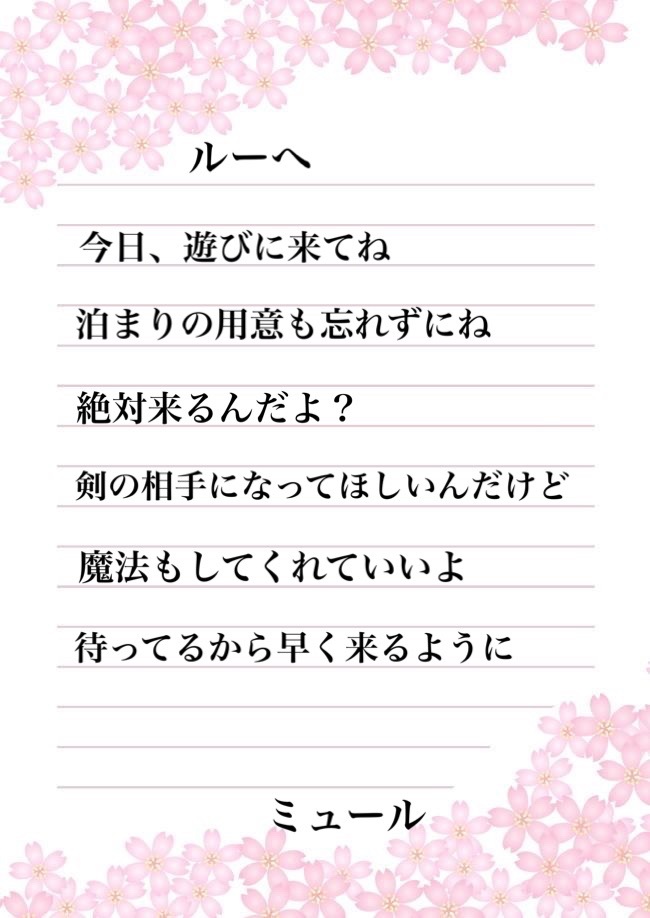 ルーへ
今日、遊びに来てね
泊まりの用意も忘れずにね
絶対来るんだよ？
剣の相手になってほしいんだけど
魔法もしてくれていいよ
待ってるから早く来るように
ミュール